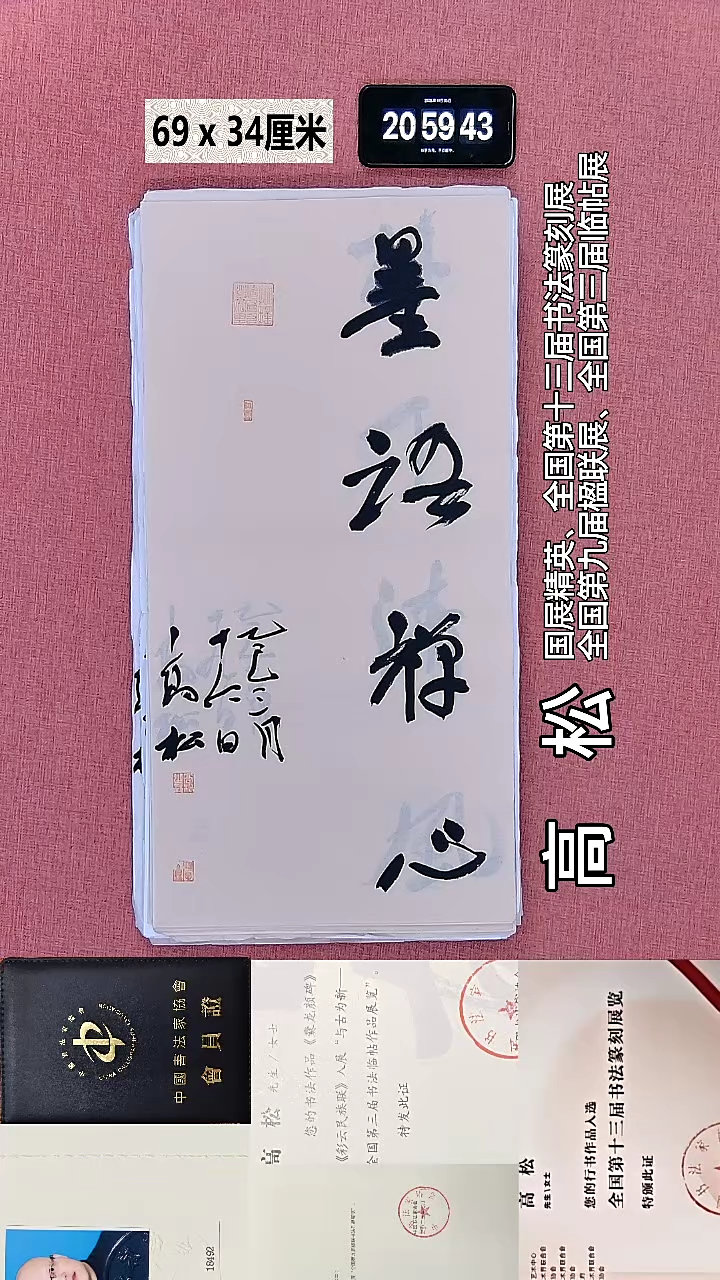 69 x 34厘米
20 59 43
墨
语
禅
心
乙巳三月
十六日
高松
国展精英、全国第十三届书法篆刻展
全国第九届楹联展、全国第三届临帖展
高 松
中國書法家協會
會員證
高 松 先生/女士
您的书法作品《爨龙颜碑》
《彩云民族联》入展“与古为新——
全国第三届书法临帖作品展览”。
特发此证
高 松
先生\女士
您的行书作品入选
全国第十三届书法篆刻展览
特颁此证
18492